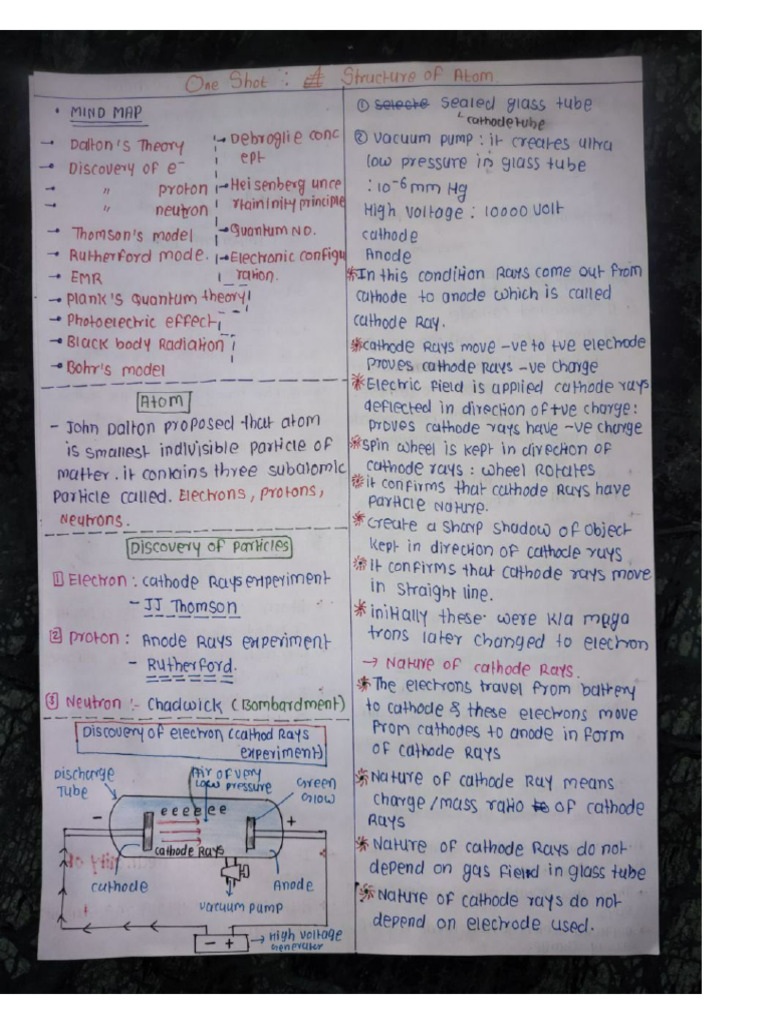 One Shot : Structure of Atom
• MIND MAP
→ Dalton's Theory
→ Discovery of e⁻
→ " proton
→ " neutron
→ Thomson's model
→ Rutherford mode.
→ EMR
→ Plank's Quantum theory
→ Photoelectric effect
→ Black body Radiation
→ Bohr's model
→ Debroglie conc
ept
→ Heisenberg unce
rtaininity principle
→ Quantum NO.
→ Electronic configu
ration.
Atom
- John Dalton proposed that atom
is smallest indivisible particle of
matter. it contains three subatomic
particle called. Electrons, protons,
Neutrons.
Discovery of Particles
1 Electron : cathode Rays experiment
- JJ Thomson
2 proton : Anode Rays experiment
- Rutherford.
3 Neutron :- Chadwick (Bombardment)
Discovery of electron (cathod Rays
experiment)
Discharge
Tube
Air of very
low pressure
Green
Glow
- e e e e e e +
cathode Rays
cathode
Anode
vacuum pump
- +
→ High voltage
Generator
① selecte sealed glass tube
cathode tube
② vacuum pump : it creates ultra
low pressure in glass tube
: 10⁻⁶ mm Hg
High voltage : 10000 volt
cathode
Anode
* In this condition Rays come out from
cathode to anode which is called
cathode Ray.
* cathode Rays move -ve to +ve electrode
proves cathode Rays -ve charge
* Electric field is applied cathode rays
deflected in direction of +ve charge:
proves cathode rays have -ve charge
* spin wheel is kept in direction of
cathode rays : wheel Rotates
* it confirms that cathode Rays have
particle Nature.
* create a sharp shadow of object
kept in direction of cathode rays
* it confirms that cathode rays move
in straight line.
* initially these were k/a mega
trons later changed to electron
→ Nature of cathode Rays.
* The electrons travel from battery
to cathode & these electrons move
from cathodes to anode in form
of cathode Rays
* Nature of cathode Ray means
charge/mass ratio of cathode
Rays
* Nature of cathode Rays do not
depend on gas field in glass tube
* Nature of cathode rays do not
depend on electrode used.